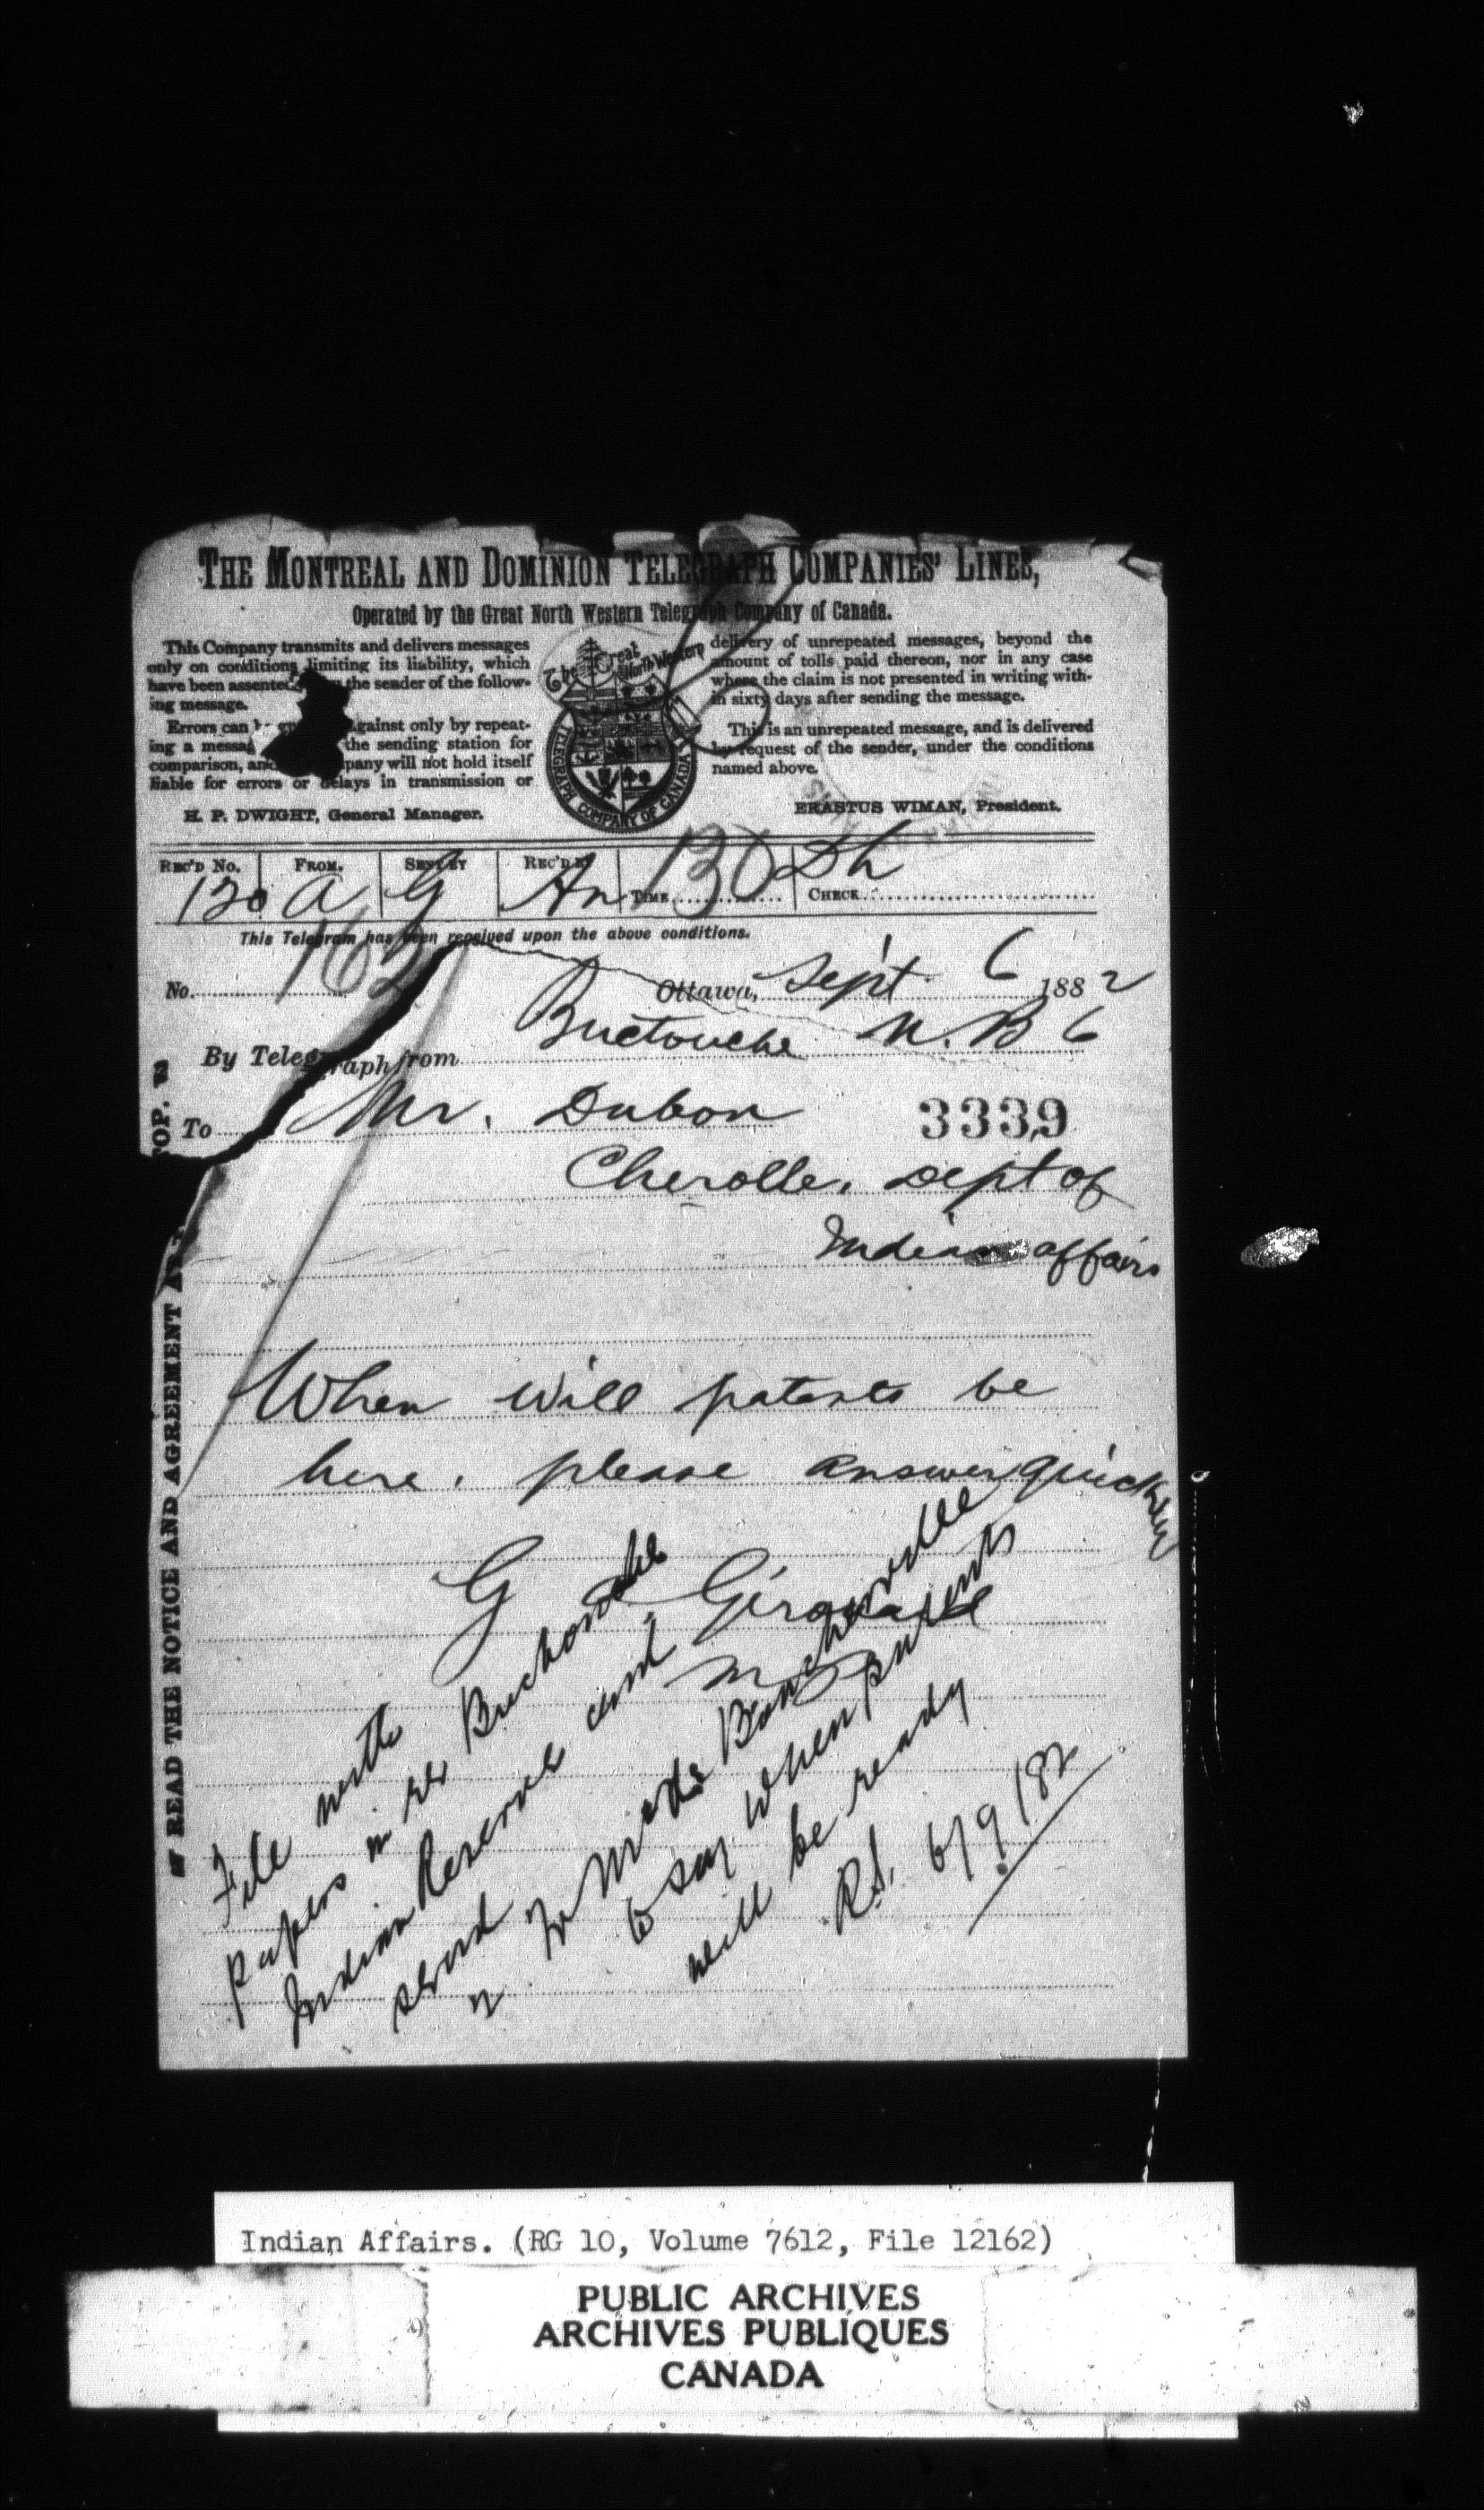 THE MONTREAL AND DOMINION TELEGRAPH COMPANIES' LINES,
Operated by the Great North Western Telegraph Company of Canada.
This Company transmits and delivers messages
only on conditions limiting its liability, which
have been assented the sender of the follow-
ing message.
Errors can be against only by repeat-
ing a messag the sending station for
comparison, and pany will not hold itself
liable for errors or delays in transmission or
H. P. DWIGHT, General Manager.
The Great North Western
TELEGRAPH COMPANY OF CANADA
delivery of unrepeated messages, beyond the
amount of tolls paid thereon, nor in any case
where the claim is not presented in writing with-
in sixty days after sending the message.
This is an unrepeated message, and is delivered
by request of the sender, under the conditions
named above.
ERASTUS WIMAN, President.
REC'D No. FROM. SENT BY REC'D BY TIME 130 CHECK Dh
120 a G An
This Telegram has been received upon the above conditions.
No. 162
Ottawa, Sept. 6 1882
By Telegraph from Buctouche N.B 6
To Mr. Dubon 3339
Cherolle. Dept of
Indian affairs
When will patents be
here. please answer quickly
G a Girouard
File with
papers in re Buctouche
Indian Reserve and
send
to Mr de Boucherville
to say when patents
will be ready
R.S. 6/9/82
READ THE NOTICE AND AGREEMENT AT TOP.
Indian Affairs. (RG 10, Volume 7612, File 12162)
PUBLIC ARCHIVES
ARCHIVES PUBLIQUES
CANADA